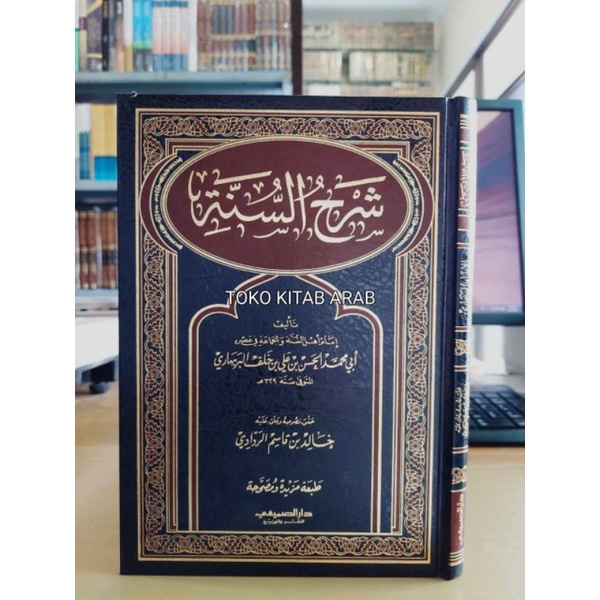 شرح السنة
TOKO KITAB ARAB
تأليف
إمام أهل السنة والجماعة في عصره
أبي محمد الحسن بن علي بن خلف البربهاري
المتوفى سنة ٣٢٩ هـ
حقق نصوصه وعلق عليه
خالد بن قاسم الردادي
طبعة مزيدة ومصححة
دار الصميعي
للنشر والتوزيع